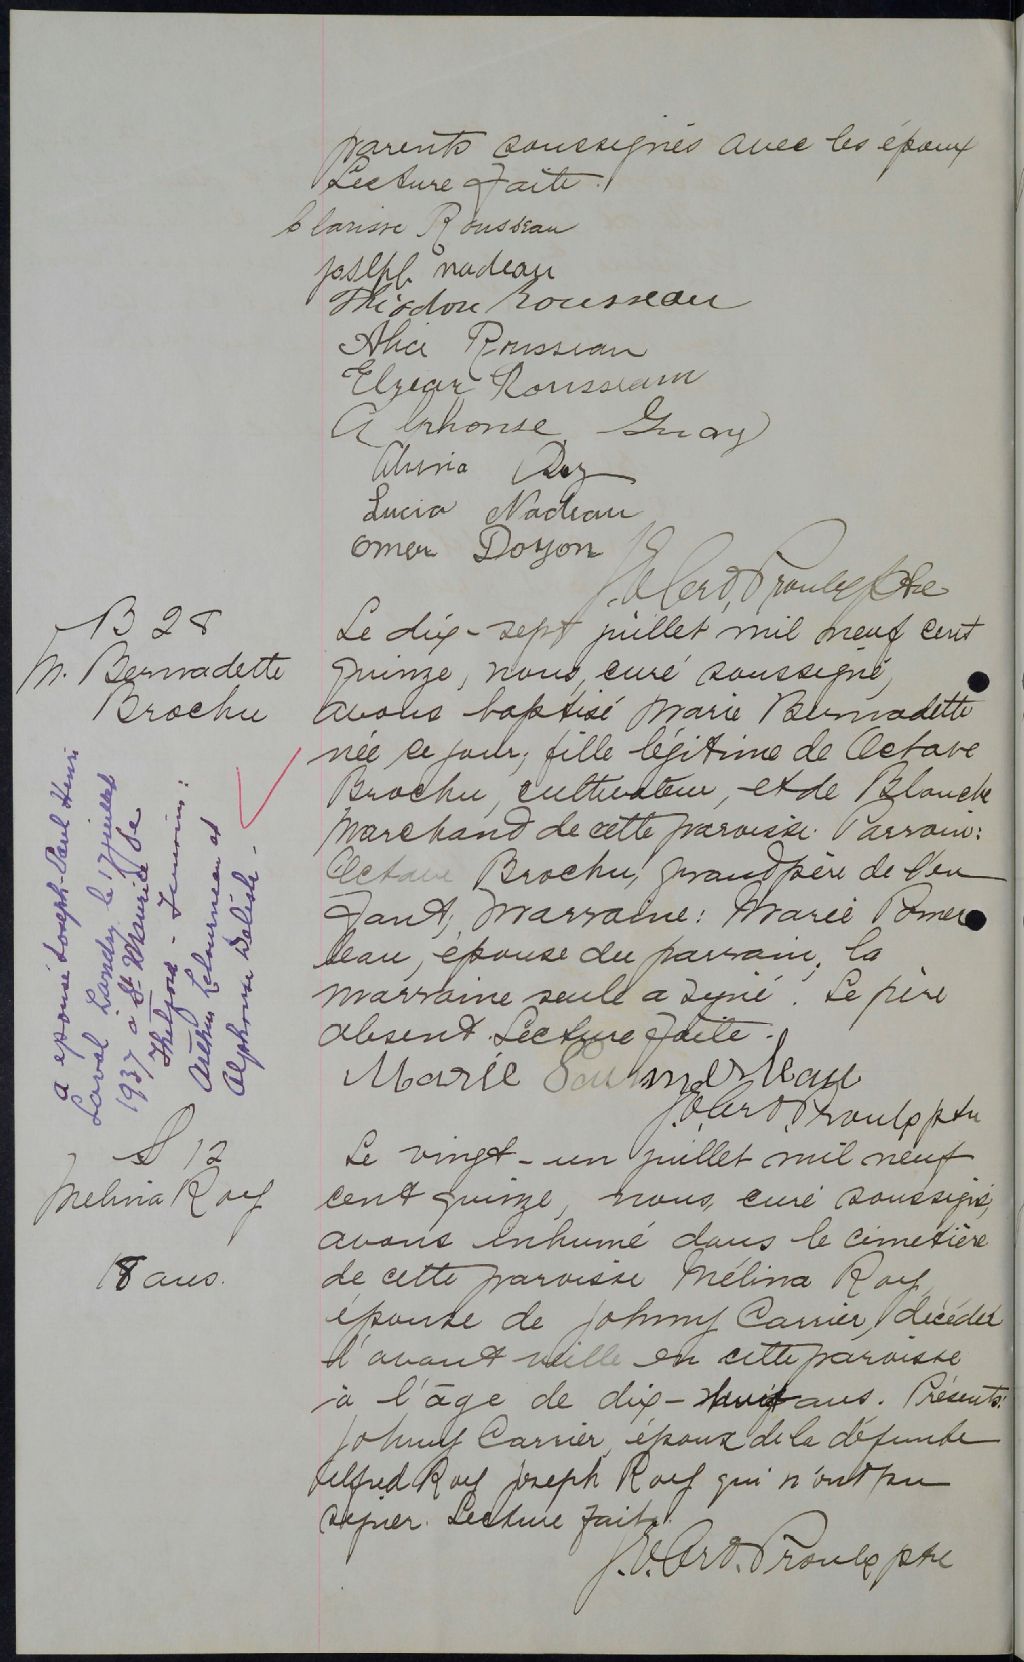 parents soussignés avec les époux
Lecture faite.
Clarisse Rousseau
joseph nadeau
Théodore Rousseau
Alice Rousseau
Elzear Rousseau
Alphonse Guay
Alvina Roy
Lucia Nadeau
Omer Doyon
Proulx ptre
B 28
M. Bernadette
Brochu
Le dix-sept juillet mil neuf cent
quinze, nous, curé soussigné,
avons baptisé Marie Bernadette
née ce jour, fille légitime de Octave
Brochu, cultivateur, et de Blanche
Marchand de cette paroisse. Parrain:
Octave Brochu, grand père de l'en
fant; Marraine: Marie Pomer
leau, épouse du parrain, la
marraine seule a signé. Le père
absent. Lecture faite.
Marie Poumerleau
Proulx ptre
a épousé Joseph-Paul Henri
Laval Landry le 17 juillet
1937 à St Maurice de
Thetford - Témoins:
Arthur Letourneau et
Alphonse Delisle -
S 12
Melina Roy
18 ans.
Le vingt-un juillet mil neuf
cent quinze, nous, curé soussigné,
avons inhumé dans le cimetière
de cette paroisse Mélina Roy,
épouse de Johnny Carrier, décédée
l'avant veille en cette paroisse
à l'âge de dix-huit ans. Présents:
Johnny Carrier, époux de la défunte
Alfred Roy Joseph Roy qui n'ont pu
signer. Lecture faite.
Proulx ptre